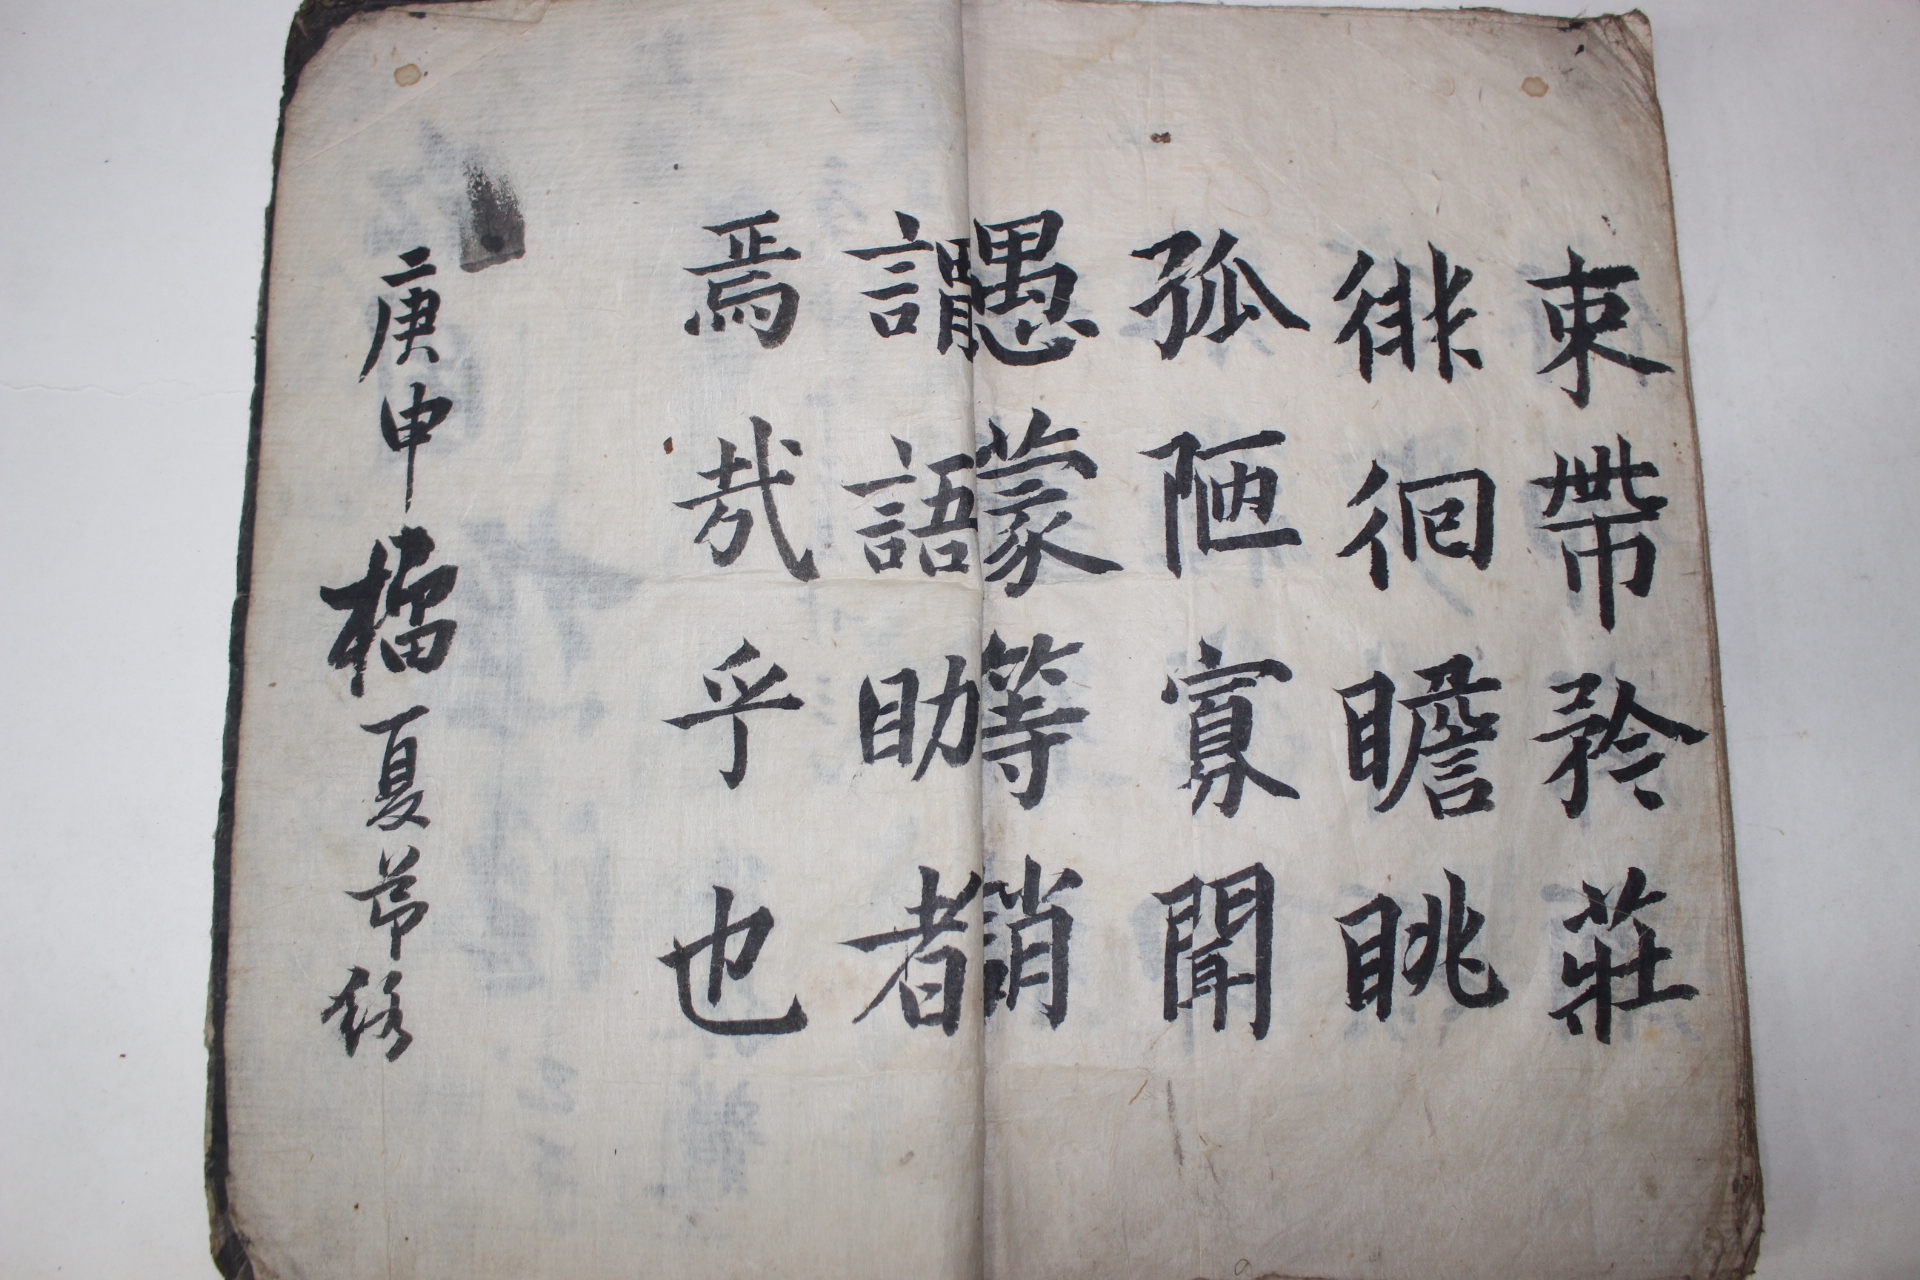 束帶矜莊
徘徊瞻眺
孤陋寡聞
愚蒙等誚
謂語助者
焉哉乎也
庚申榴夏莭